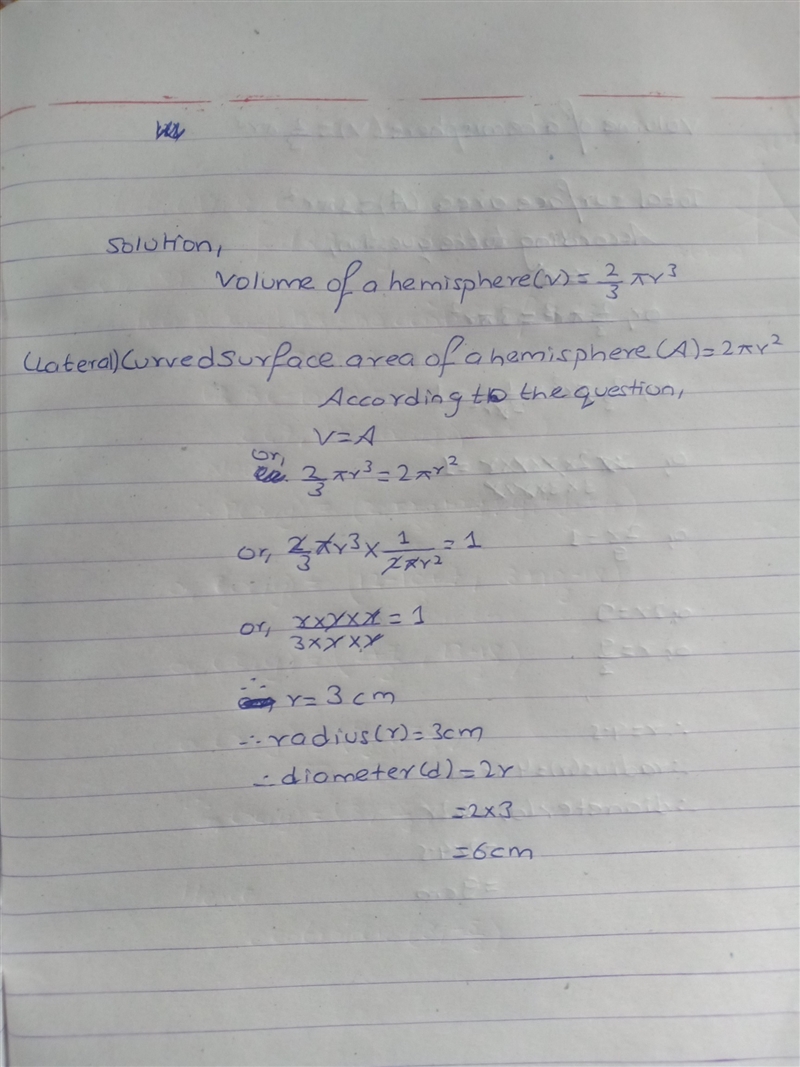 Solution,
Volume of a hemisphere(V)=2/3 πr³
(Lateral)Curved surface area of a hemisphere(A)=2πr²
According to the question,
V=A
or, 2/3 πr³=2πr²
or, 2/3 πr³×1/2πr²=1
or, r×r×r/3×r×r=1
∴ r=3cm
∴radius(r)=3cm
∴diameter(d)=2r
=2×3
=6cm